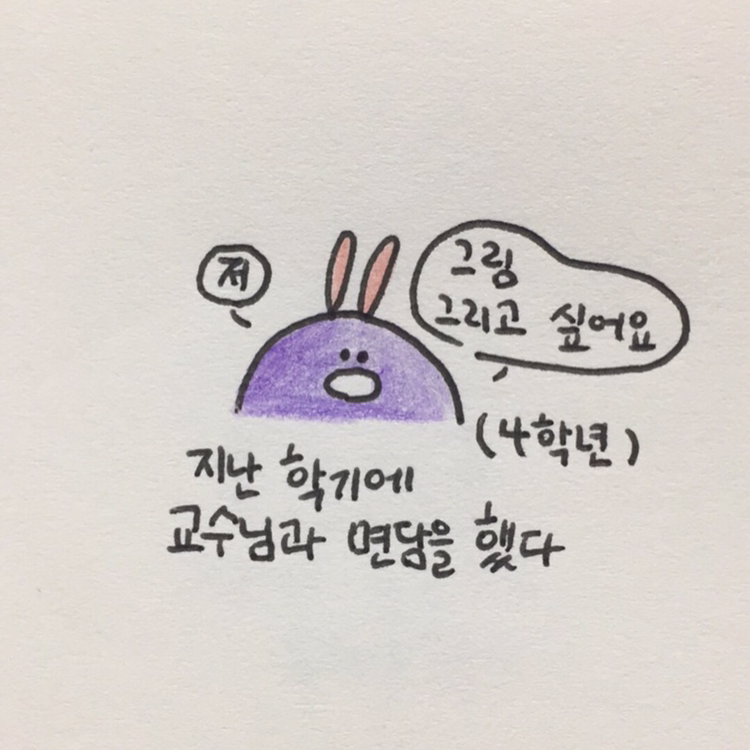 저
그림
그리고 싶어요
(4학년)
지난 학기에
교수님과 면담을 했다